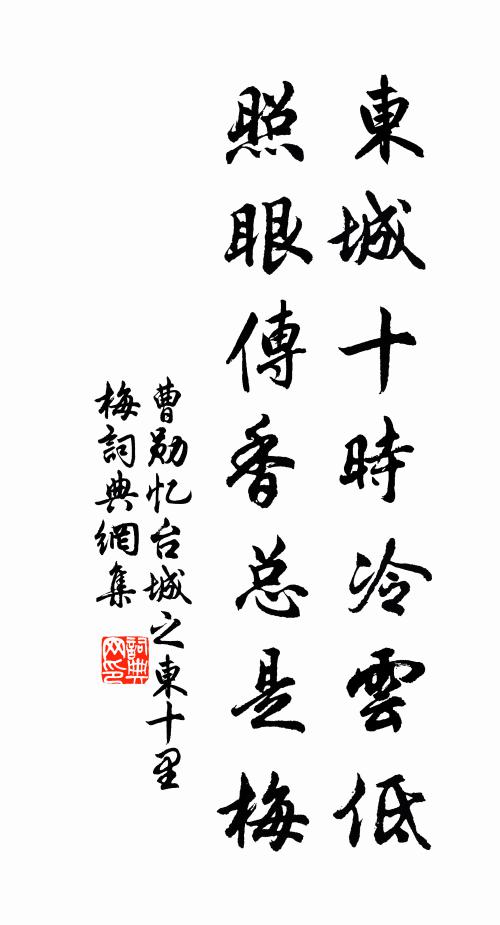 東城十時冷雲低
照眼傳香总是梅
曹勛忆台城之東十里
梅詞典網集
詞典网印